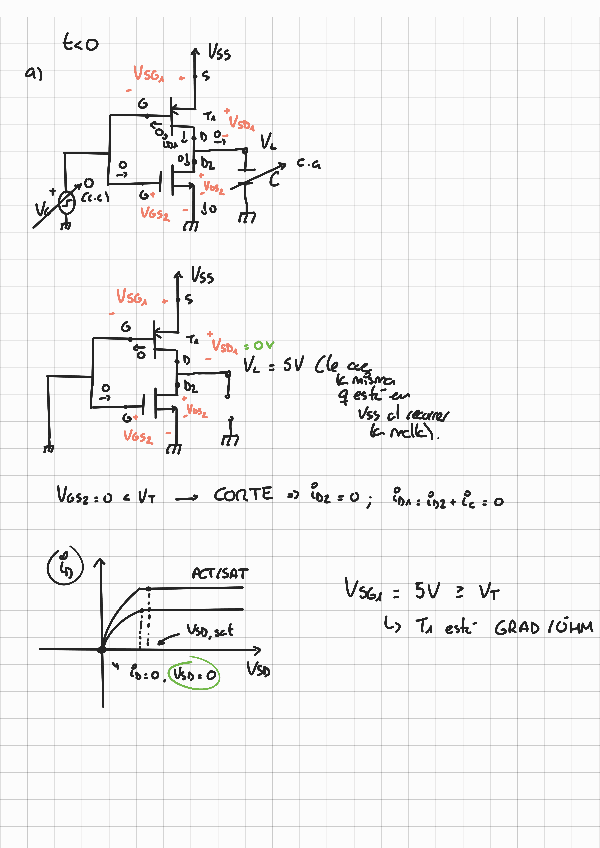 t<0
a)
VSS
VSG1
-
+
S
G
T1
+
VSD1
-
0
iD1
D
0
VL
0
D2
c.a
C
0
+
VDS2
-
G
+
VGS2
-
0
+
VG
0
(c.c)
VSS
VSG1
-
+
S
G
T1
+
VSD1 = 0V
-
0
D
VL = 5V (le cae
la misma
q está en
VSS al recorrer
la malla).
D2
0
+
VDS2
-
G
+
VGS2
-
VGS2 = 0 < VT → CORTE => iD2 = 0 ; iD1 = iD2 + ic = 0
iD
ACT/SAT
VSD,sat
VSD
iD=0, VSD=0
VSG1 = 5V ≥ VT
↳ T1 está GRAD/ÓHM